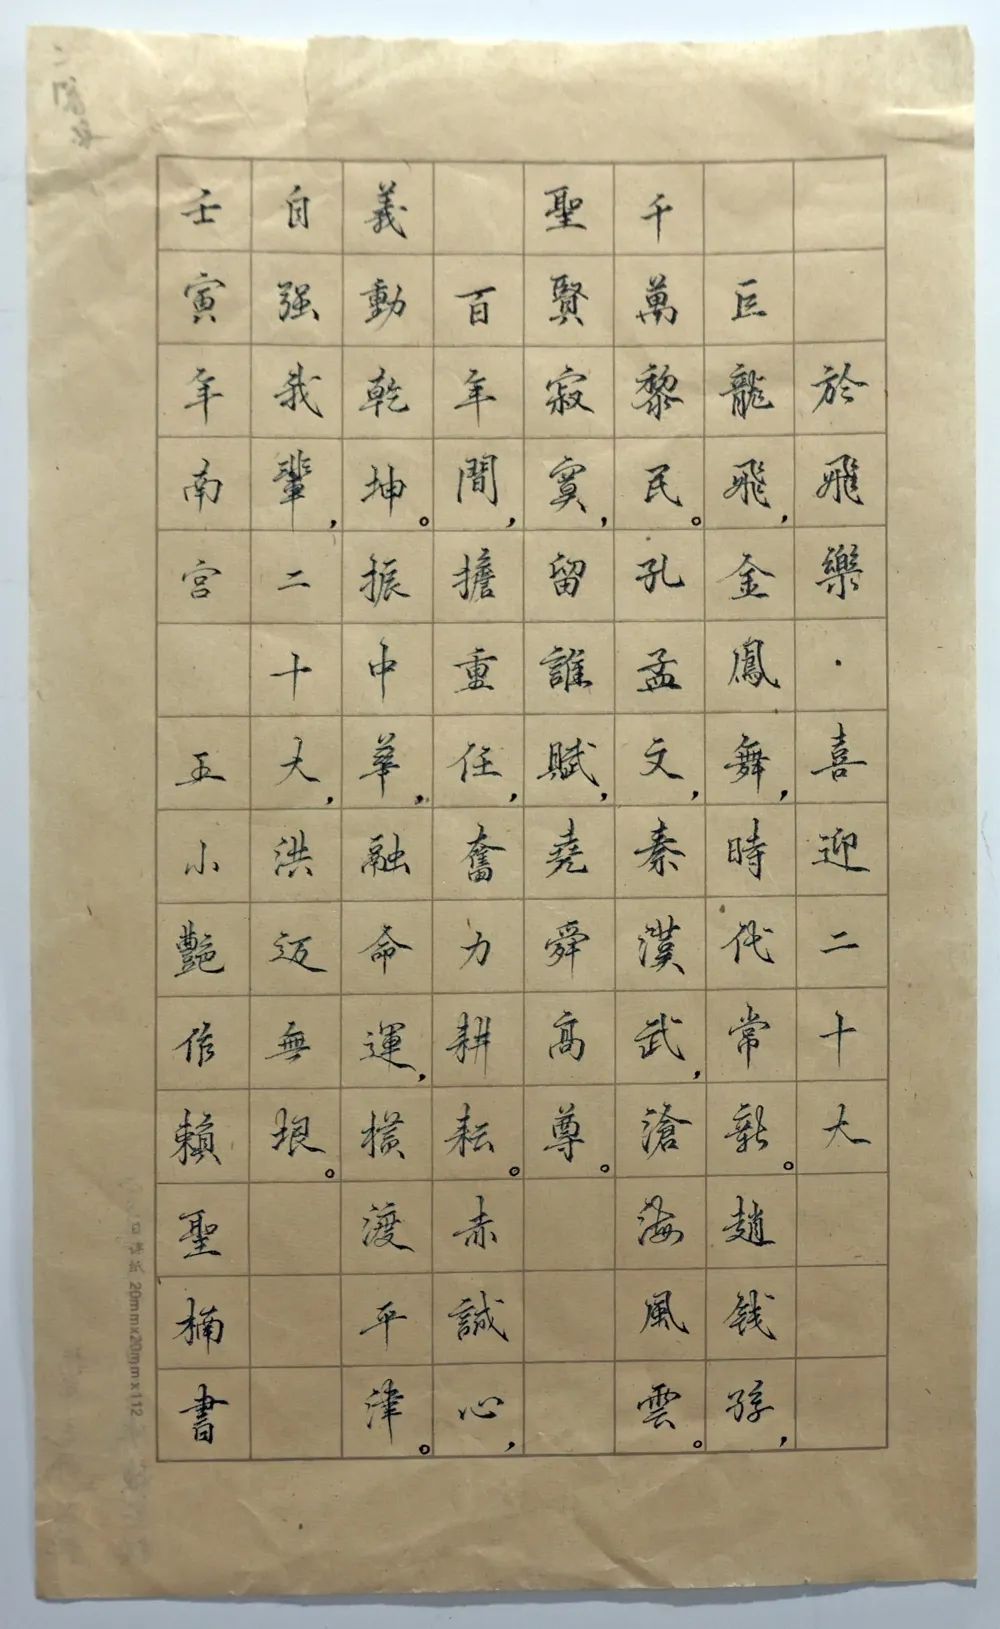 於飛樂·喜迎二十大
巨龍飛，金鳳舞，時代常新。趙钱孫，
千萬黎民。孔孟文，秦漢武，滄海風雲。
聖賢寂寞，留誰賦，堯舜高尊。
百年間，擔重任，奮力耕耘。赤誠心，
義動乾坤。振中華，融命運，橫渡平津。
自强我輩，二十大，洪迈無垠。
壬寅年南宫 五小艷作賴聖楠書
日课纸 20mmx20mmx112